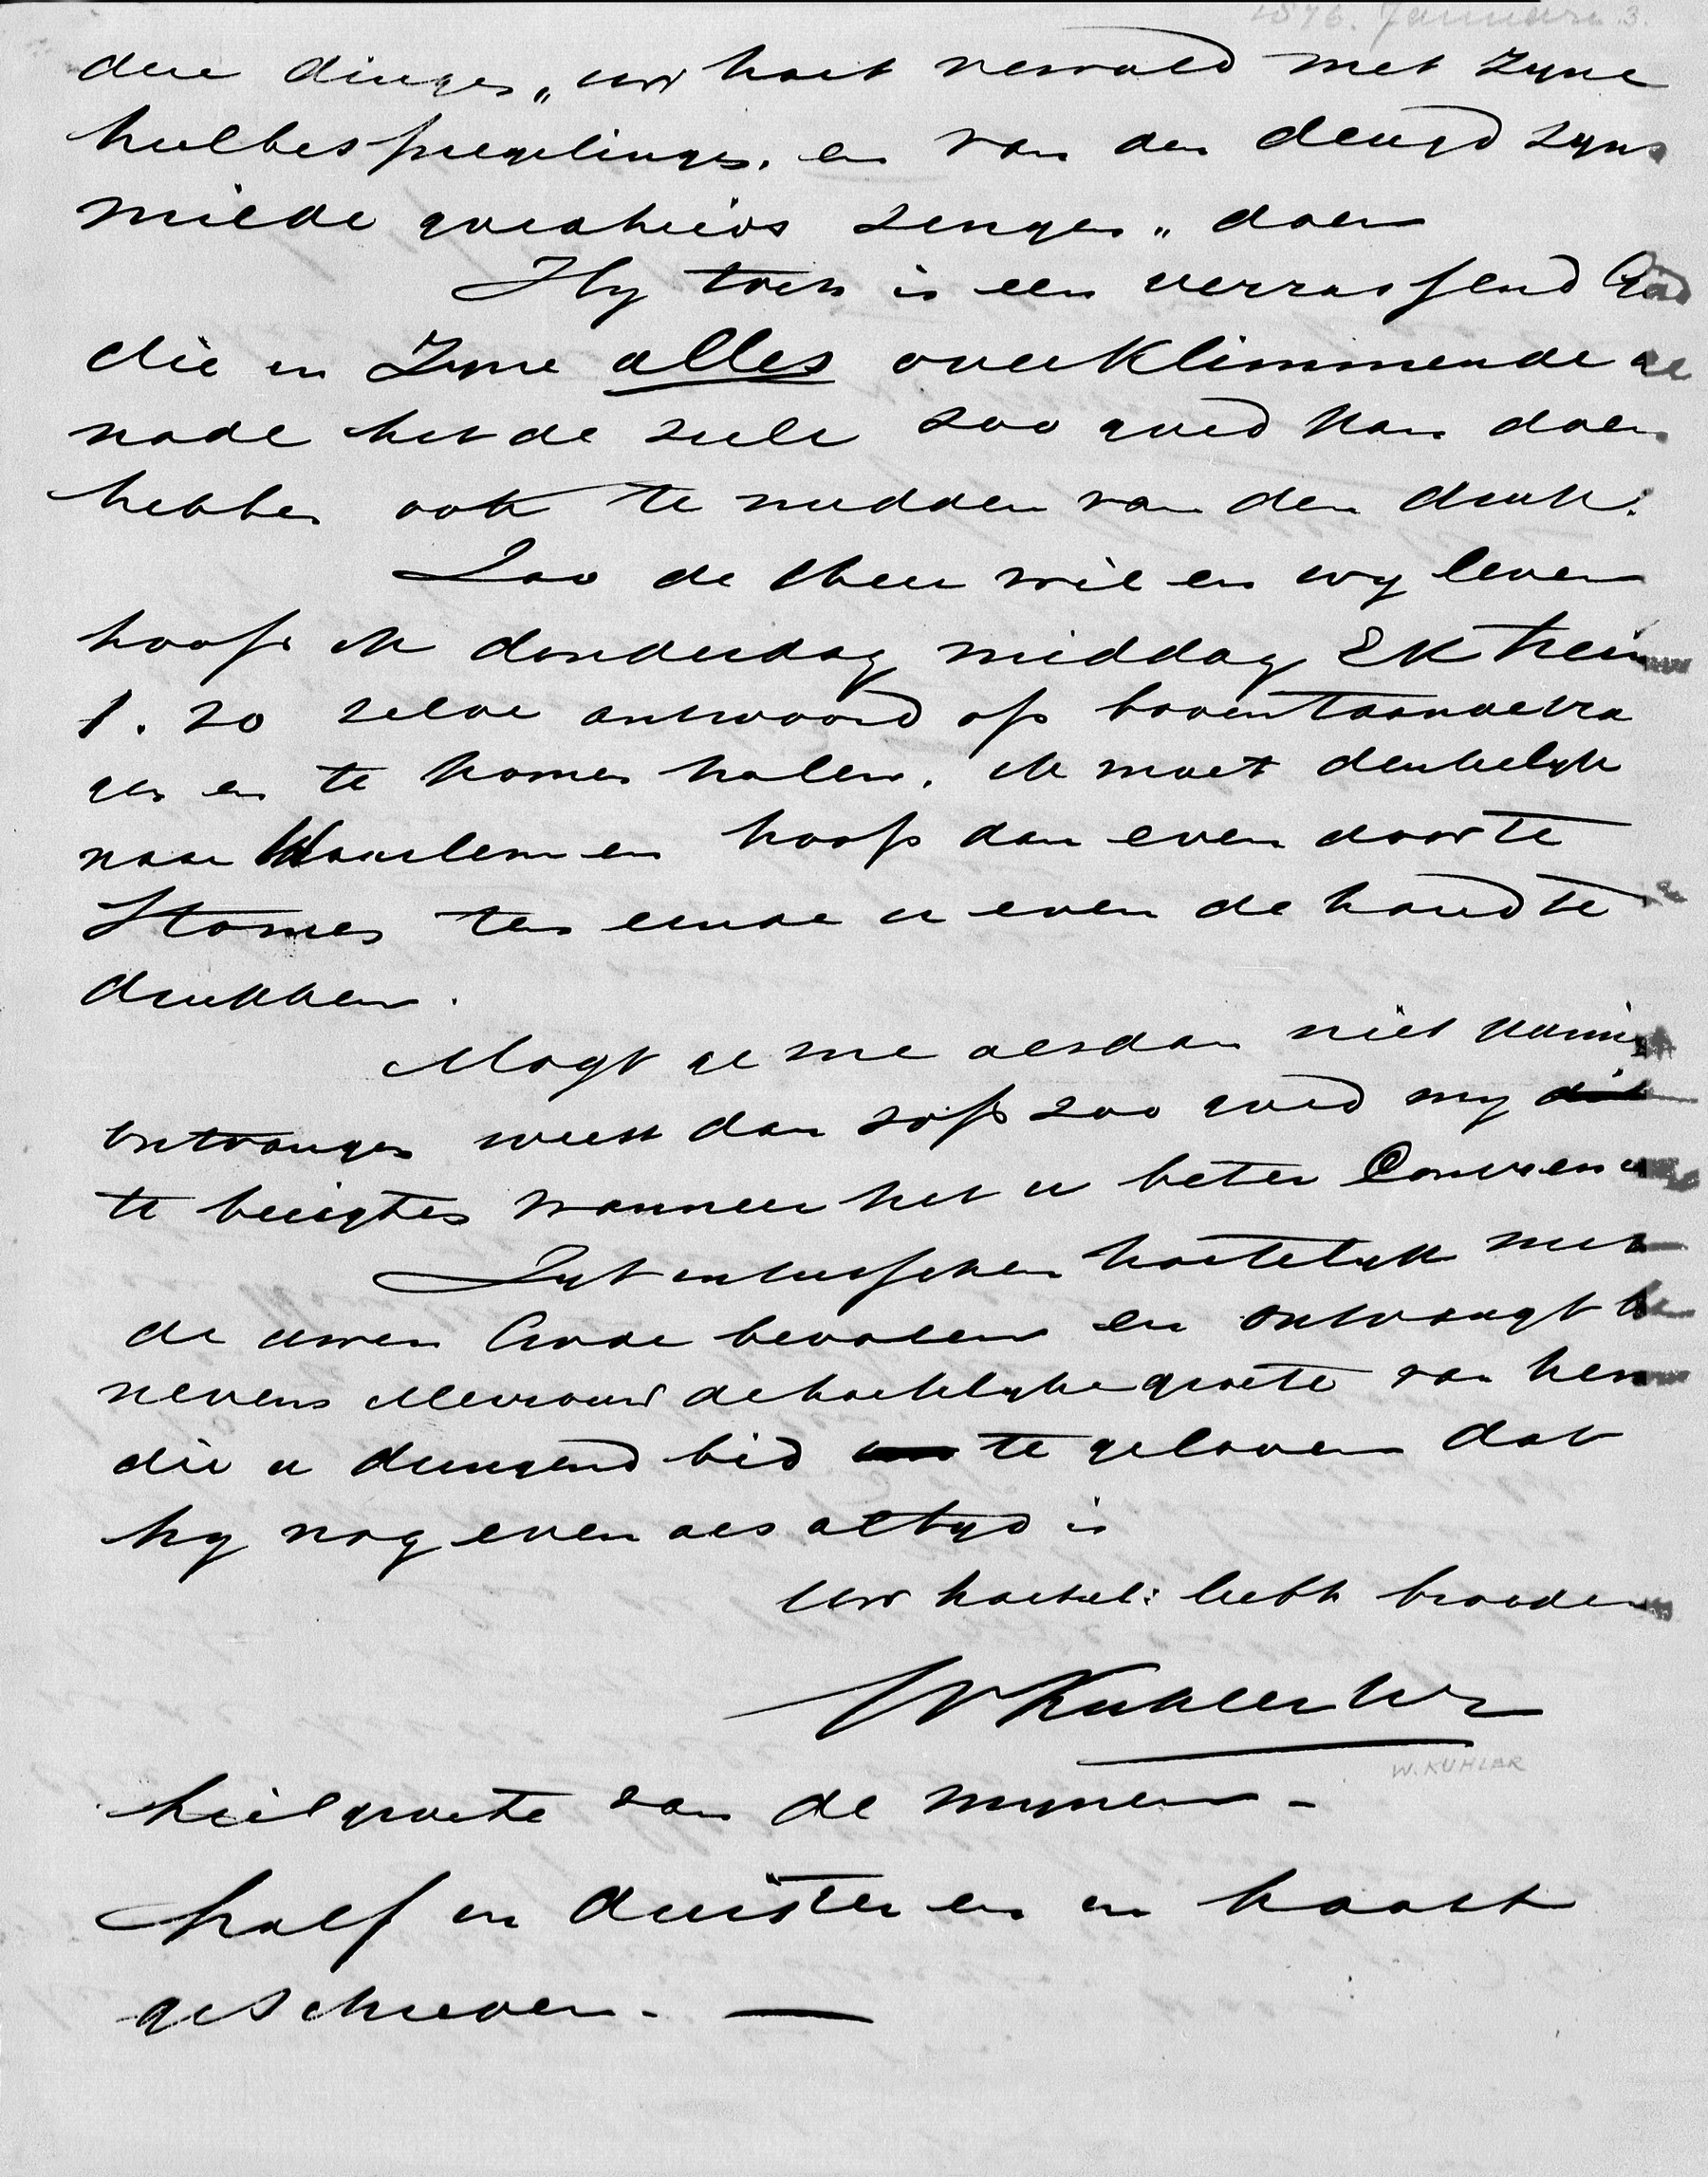 1876. Januari 3.
dere dingen „uw hart vervald met zyne
heelbespiegelingen. en van den deugd zyns
milde goedheids zingen" doen
Hy toch is een verrassend God
die in Zyne alles overklimmende ge
nade het de ziele zoo goed kan doen
hebben ook te midden van den druk.
Zoo de Heer wil en wy leven
hoop ik donderdag middag EK trein
1.20 zelve antwoord op bovenstaande vra
gen en te komen halen. ik moet denkelyk
naar Haarlem en hoop dan even door te
Stomen ten einde u even de hand te
drukken.
Mogt ge me alsdan niet kunnen
ontvangen weest dan zoo goed my
te berigten wanneer het u beter
Zyt intusschen hartelyk met
de uwen Gode bevolen en ontvangt
nevens Mevrouw de hartelyke groete van hem
die u dringend bid te gelooven dat
hy nog even als altyd is
Uw hartel: liefh broeder
W Kuhler Wz
W. KUHLER
heilgroete van de mynen -
half in duister en in haast
geschreven. —